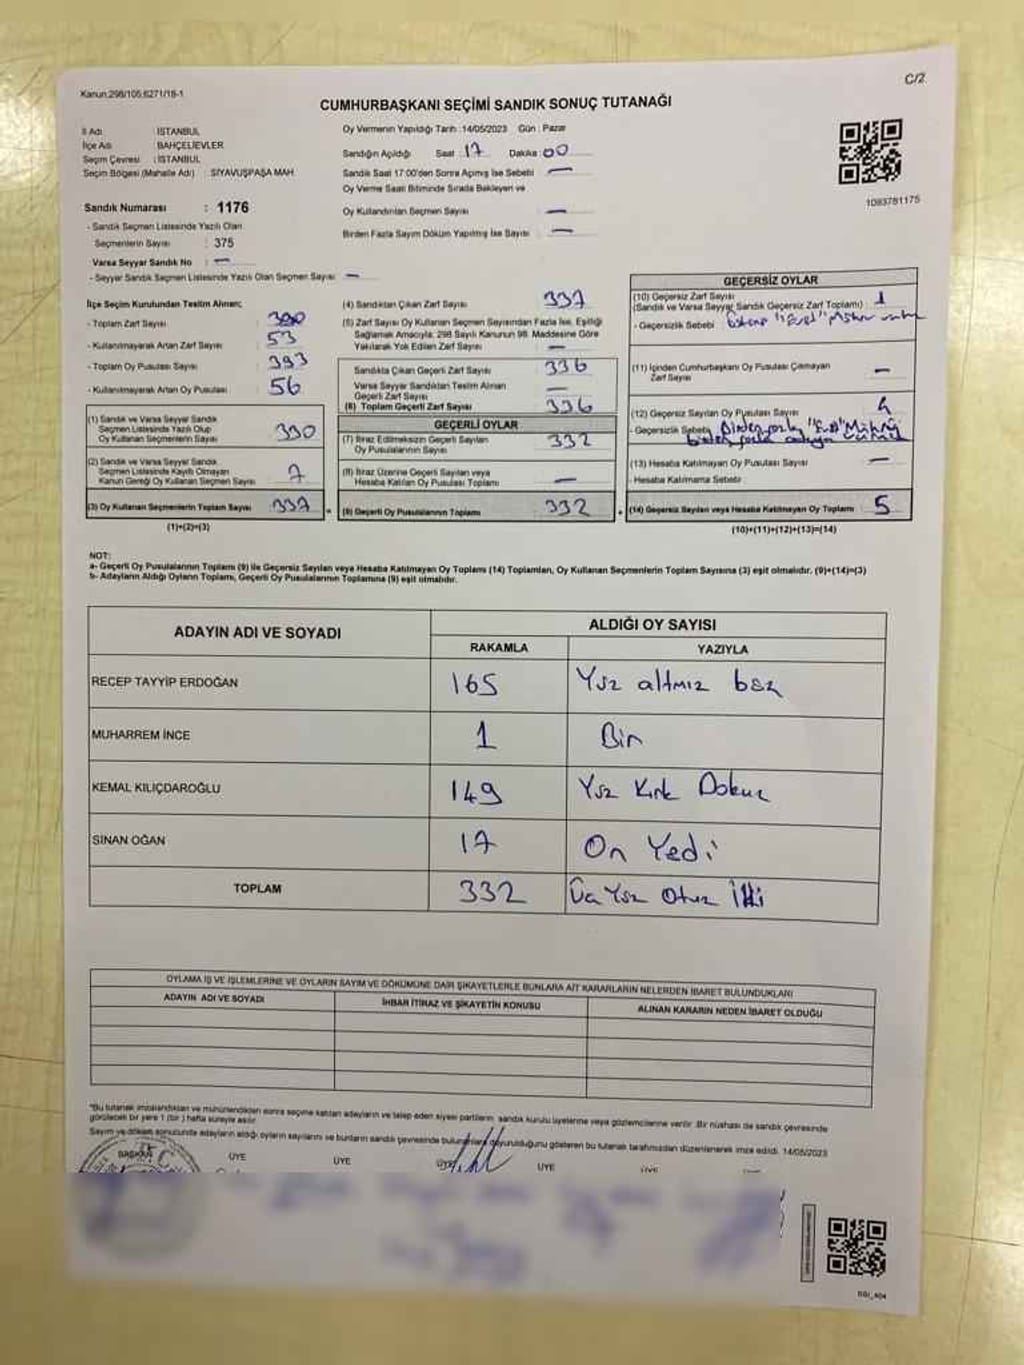 Kanun:298/105,6271/18-1
C/2
CUMHURBAŞKANI SEÇİMİ SANDIK SONUÇ TUTANAĞI
İl Adı : İSTANBUL
İlçe Adı : BAHÇELİEVLER
Seçim Çevresi : İSTANBUL
Seçim Bölgesi (Mahalle Adı) : SİYAVUŞPAŞA MAH.
Sandık Numarası : 1176
- Sandık Seçmen Listesinde Yazılı Olan
Seçmenlerin Sayısı : 375
Varsa Seyyar Sandık No : —
- Seyyar Sandık Seçmen Listesinde Yazılı Olan Seçmen Sayısı : —
Oy Vermenin Yapıldığı Tarih : 14/05/2023 Gün : Pazar
Sandığın Açıldığı Saat : 17 Dakika : 00
Sandık Saat 17:00'den Sonra Açılmış İse Sebebi : —
Oy Verme Saati Bitiminde Sırada Bekleyen ve
Oy Kullandırılan Seçmen Sayısı : —
Birden Fazla Sayım Döküm Yapılmış İse Sayısı : —
1093781175
İlçe Seçim Kurulundan Teslim Alınan;
- Toplam Zarf Sayısı :
- Kullanılmayarak Artan Zarf Sayısı : 53
- Toplam Oy Pusulası Sayısı : 393
- Kullanılmayarak Artan Oy Pusulası : 56
(1) Sandık ve Varsa Seyyar Sandık
Seçmen Listesinde Yazılı Olup
Oy Kullanan Seçmenlerin Sayısı : 330
(2) Sandık ve Varsa Seyyar Sandık
Seçmen Listesinde Kaydı Olmayan
Kanun Gereği Oy Kullanan Seçmen Sayısı : 7
(3) Oy Kullanan Seçmenlerin Toplam Sayısı : 337
(1)+(2)=(3)
(4) Sandıktan Çıkan Zarf Sayısı : 337
(5) Zarf Sayısı Oy Kullanan Seçmen Sayısından Fazla İse, Eşitliği
Sağlamak Amacıyla; 298 Sayılı Kanunun 98. Maddesine Göre
Yakılarak Yok Edilen Zarf Sayısı : —
Sandıkta Çıkan Geçerli Zarf Sayısı : 336
Varsa Seyyar Sandıktan Teslim Alınan
Geçerli Zarf Sayısı : —
(6) Toplam Geçerli Zarf Sayısı : 336
GEÇERLİ OYLAR
(7) İtiraz Edilmeksizin Geçerli Sayılan
Oy Pusulalarının Sayısı : 332
(8) İtiraz Üzerine Geçerli Sayılan veya
Hesaba Katılan Oy Pusulası Toplamı : —
(9) Geçerli Oy Pusulalarının Toplamı : 332
GEÇERSİZ OYLAR
(10) Geçersiz Zarf Sayısı
(Sandık ve Varsa Seyyar Sandık Geçersiz Zarf Toplamı) : 1
- Geçersizlik Sebebi : "Evet"
(11) İçinden Cumhurbaşkanı Oy Pusulası Çıkmayan
Zarf Sayısı : —
(12) Geçersiz Sayılan Oy Pusulası Sayısı : 4
- Geçersizlik Sebebi : Birden fazla "Evet" Mührü
(13) Hesaba Katılmayan Oy Pusulası Sayısı : —
- Hesaba Katılmama Sebebi :
(14) Geçersiz Sayılan veya Hesaba Katılmayan Oy Toplamı : 5
(10)+(11)+(12)+(13)=(14)
NOT:
a- Geçerli Oy Pusulalarının Toplamı (9) ile Geçersiz Sayılan veya Hesaba Katılmayan Oy Toplamı (14) Toplamları, Oy Kullanan Seçmenlerin Toplam Sayısına (3) eşit olmalıdır. (9)+(14)=(3)
b- Adayların Aldığı Oyların Toplamı, Geçerli Oy Pusulalarının Toplamına (9) eşit olmalıdır.
ADAYIN ADI VE SOYADI
ALDIĞI OY SAYISI
RAKAMLA YAZIYLA
RECEP TAYYİP ERDOĞAN 165 Yüz altmış beş
MUHARREM İNCE 1 Bir
KEMAL KILIÇDAROĞLU 149 Yüz Kırk Dokuz
SİNAN OĞAN 17 On Yedi
TOPLAM 332 Üç Yüz Otuz İki
OYLAMA İŞ VE İŞLEMLERİNE VE OYLARIN SAYIM VE DÖKÜMÜNE DAİR ŞİKAYETLERLE BUNLARA AİT KARARLARIN NELERDEN İBARET BULUNDUKLARI
ADAYIN ADI VE SOYADI İHBAR İTİRAZ VE ŞİKAYETİN KONUSU ALINAN KARARIN NEDEN İBARET OLDUĞU
"Bu tutanak imzalandıktan ve mühürlendikten sonra seçime katılan adayların ve talep eden siyasi partilerin, sandık kurulu üyelerine veya gözlemcilerine verilir. Bir nüshası da sandık çevresinde
görülecek bir yere 1 (bir) hafta süreyle asılır.
Sayım ve döküm sonucunda adayların aldığı oyların sayılarını ve bunların sandık çevresinde bulunanlara duyurulduğunu gösteren bu tutanak tarafımızdan düzenlenerek imza edildi. 14/05/2023
BAŞKAN ÜYE ÜYE ÜYE ÜYE ÜYE